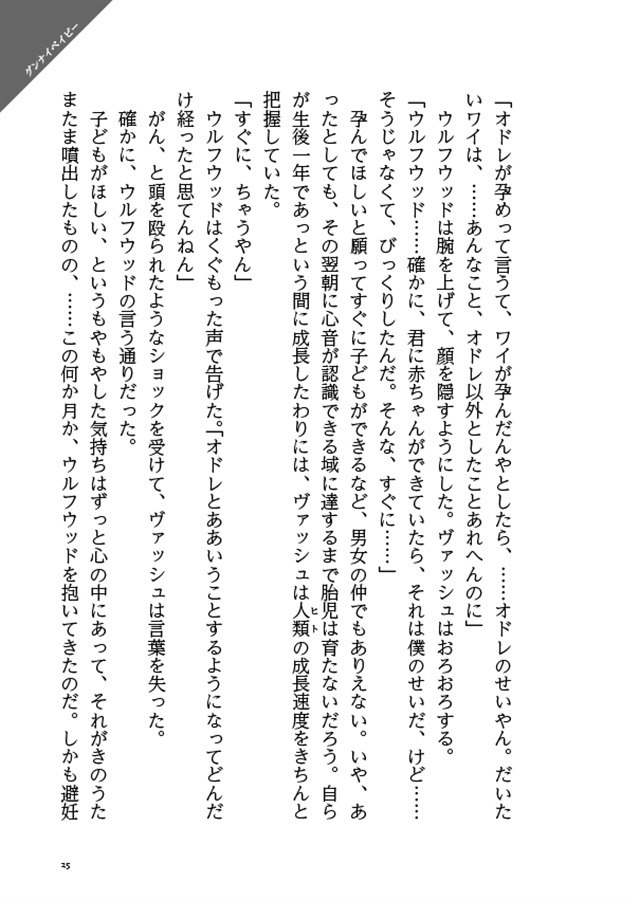 グンナイベイビー
「オドレが孕めって言うて、ワイが孕んだんやとしたら、……オドレのせいやん。だいた
いワイは、……あんなこと、オドレ以外としたことあれへんのに」
ウルフウッドは腕を上げて、顔を隠すようにした。ヴァッシュはおろおろする。
「ウルフウッド……確かに、君に赤ちゃんができていたら、それは僕のせいだ、けど……
そうじゃなくて、びっくりしたんだ。そんな、すぐに……」
孕んでほしいと願ってすぐに子どもができるなど、男女の仲でもありえない。いや、あ
ったとしても、その翌朝に心音が認識できる域に達するまで胎児は育たないだろう。自ら
が生後一年であっという間に成長したわりには、ヴァッシュは人類ヒトの成長速度をきちんと
把握していた。
「すぐに、ちゃうやん」
ウルフウッドはくぐもった声で告げた。「オドレとああいうことするようになってどんだ
け経ったと思てんねん」
がん、と頭を殴られたようなショックを受けて、ヴァッシュは言葉を失った。
確かに、ウルフウッドの言う通りだった。
子どもがほしい、というもやもやした気持ちはずっと心の中にあって、それがきのうた
またま噴出したものの、……この何か月か、ウルフウッドを抱いてきたのだ。しかも避妊
25